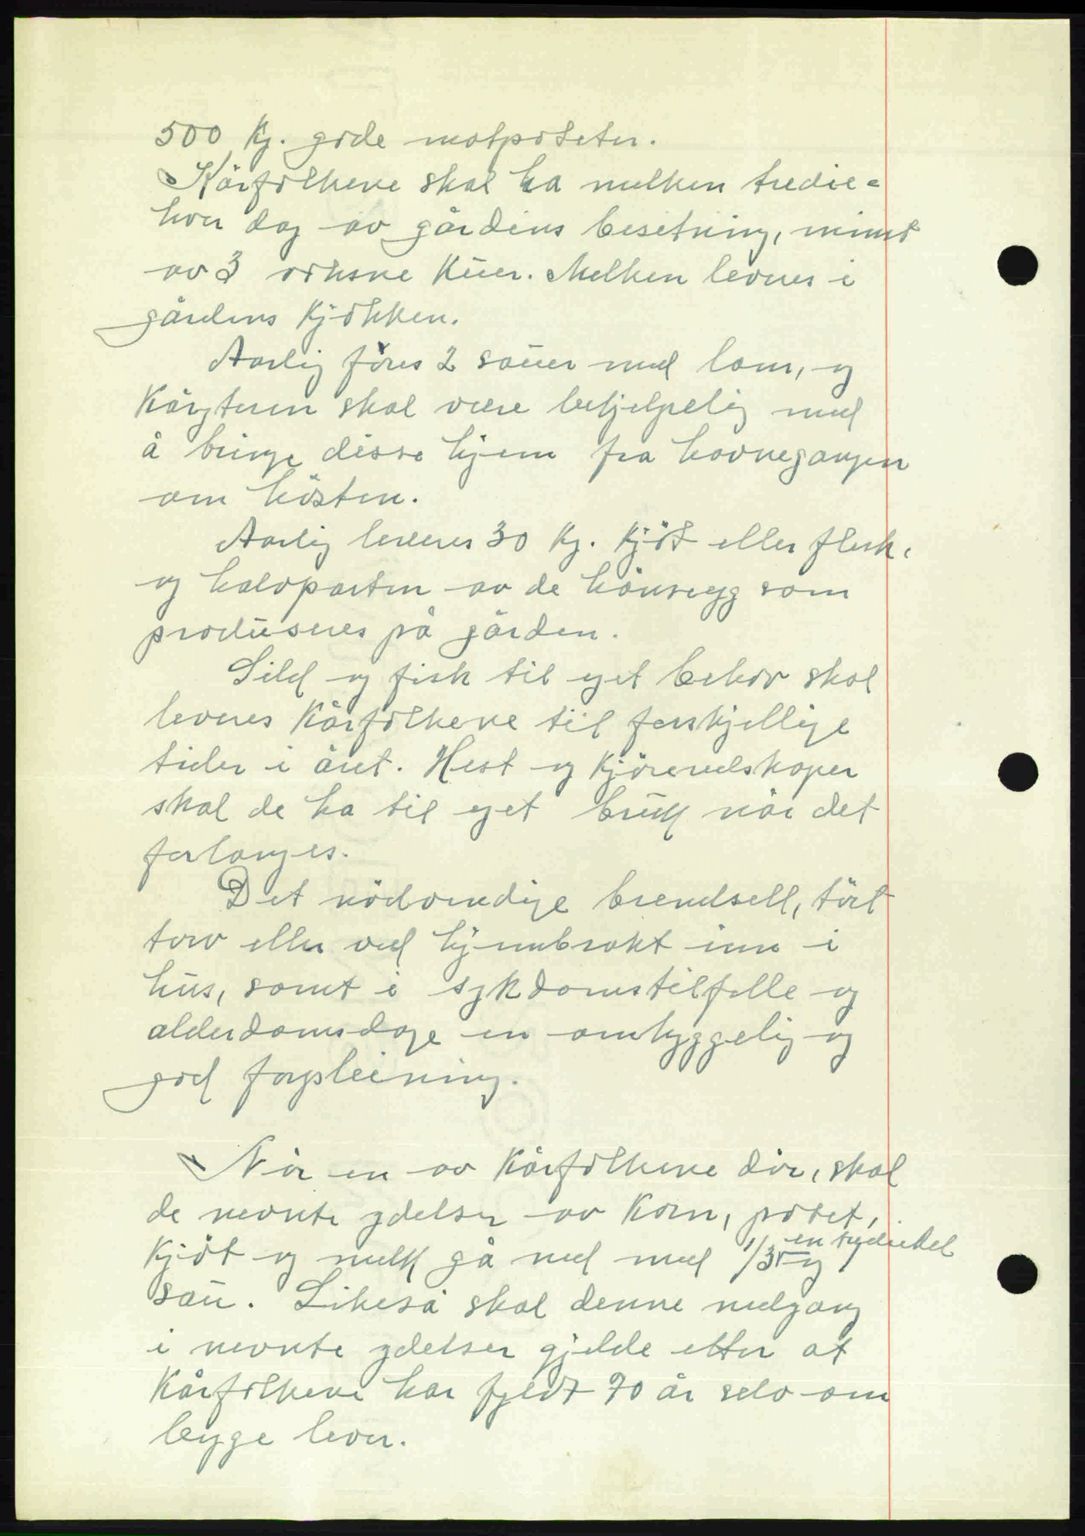 500 kg. gode matpoteter.
Kårfolkene skal ha melken tredie=
hver dag av gårdens besetning, minst
av 3 voksne kuer. Melken leveres i
gårdens kjøkken.
Aarlig fôres 2 sauer med lam, og
Kårgteren skal være behjelpelig med
å bringe disse hjem fra havnegangen
om hösten.
Aarlig leveres 30 kg. kjöt eller flesk,
og halvparten av de hönseegg som
produseres på gården.
Sild og fisk til eget behov skal
leveres kårfolkene til forskjellige
tider i året. Hest og kjöreredskaper
skal de ha til eget bruk når det
forlanges.
Det nödvendige brendsell, tört
torv eller ved hjembrakt inn i
hus, samt i sykdomstilfelle og
alderdomsdage en omhyggelig og
god forpleining.
Når en av kårfolkene dör, skal
de nevnte ydelser av korn, potet,
kjöt og melk gå ned med 1/3 og en trediedel
sau. Likeså skal denne nedgang
i nevnte ydelser gjelde etter at
kårfolkene har fyldt 70 år selv om
begge lever.